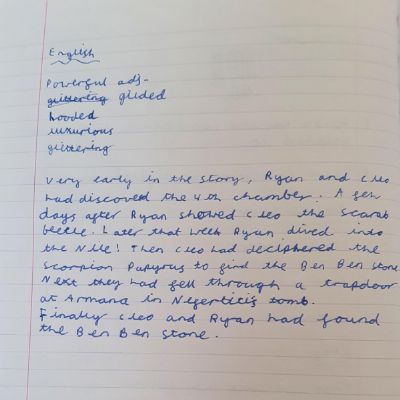 English
Powerful adj-
glittering gilded
hooded
luxurious
glittering
Very early in the story, Ryan and Cleo
had discoved the 4th chamber. A few
days after Ryan showed Cleo the scarab
beetle. Later that week Ryan dived into
the Nile! Then Cleo had deciphered the
Scorpion Papyrus to find the Ben Ben stone
Next they had fell through a trapdoor
at Armana in Nefertitis tomb.
Finally Cleo and Ryan had found
the Ben Ben stone.